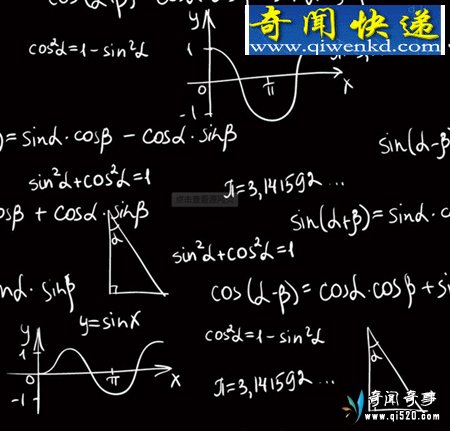 y
奇闻快递
www.qiwenkd.com
cos²α=1-sin²α
1
0
π
x
-1
)=sinα·cosβ - cosα·sinβ
sin(α-β
sin²α+cos²α=1
π=3,141592...
点击查看源网页
osβ + cosα·sinβ
α
sin(α+β)=sinα·c
sin²α+cos²α=1
nα·sinβ
cos(α-β)=cosα·cosβ+si
y=sinx
y
1
0
π
x
-1
cos²α=1-sin²α
α
π=3,141592...
奇闻奇事
www.qi520.com